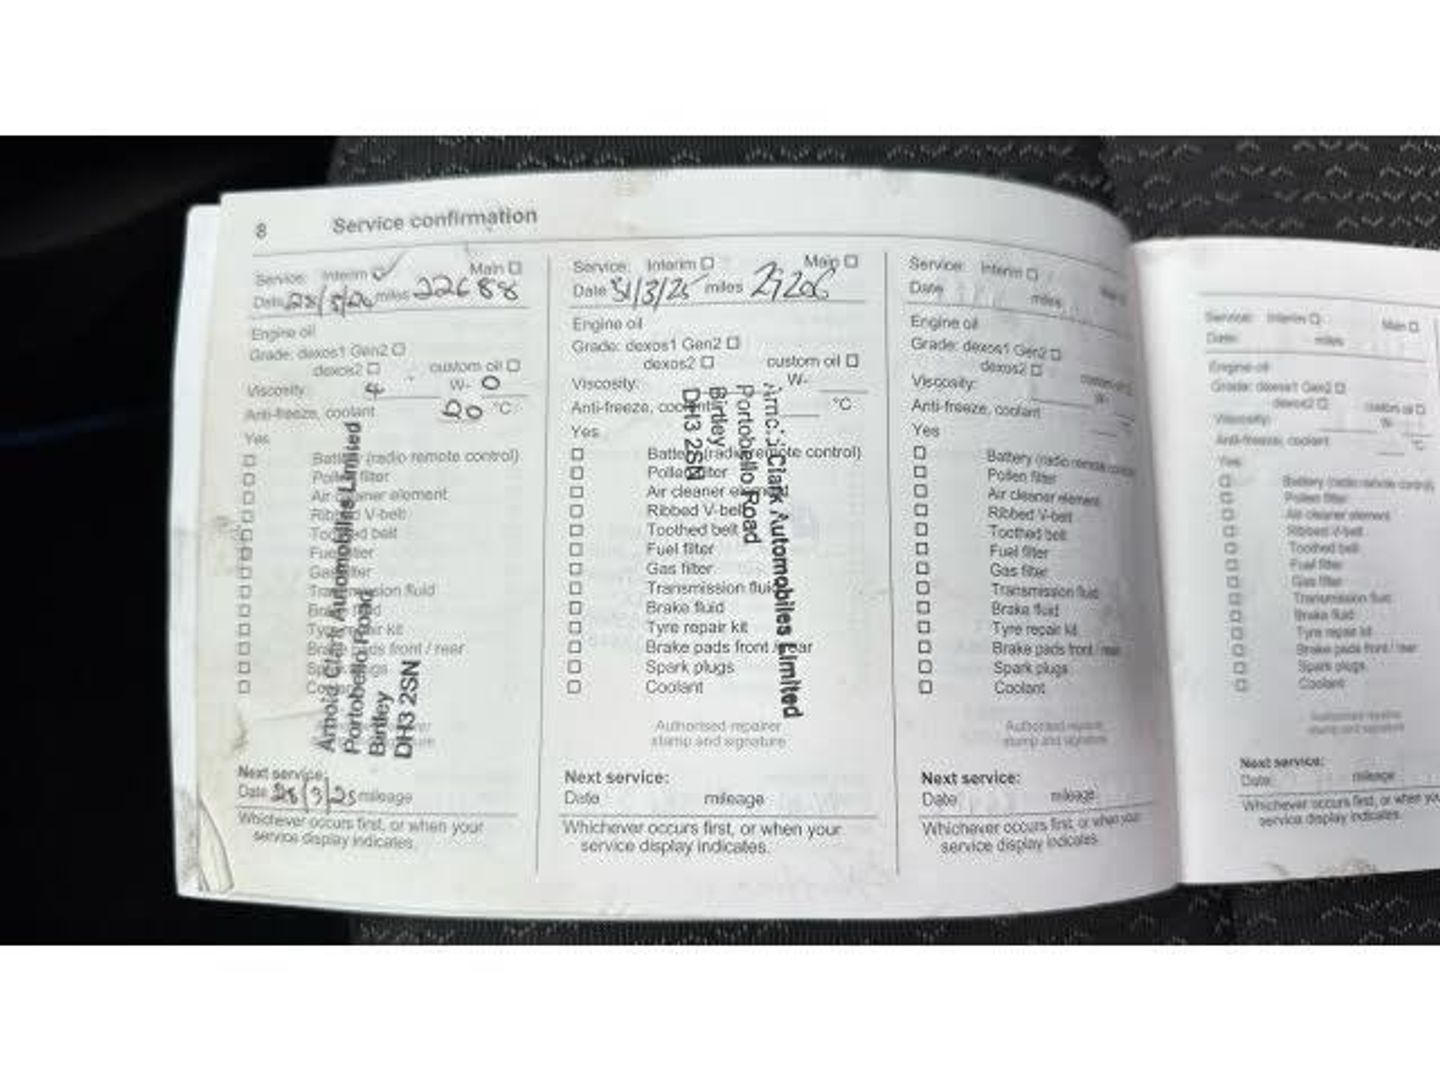 8 Service confirmation
Service: Interim ☑ Main ☐
Date miles 22688
Engine oil
Grade: dexos1 Gen2 ☐
dexos2 ☐ custom oil ☐
Viscosity: W- 0
Anti-freeze, coolant 20 °C
Yes
☐ Battery (radio remote control)
☐ Pollen filter
☐ Air cleaner element
☐ Ribbed V-belt
☐ Toothed belt
☐ Fuel filter
☐ Gas filter
☐ Transmission fluid
☐ Brake fluid
☐ Tyre repair kit
☐ Brake pads front / rear
☐ Spark plugs
☐ Coolant
Arnold Clark Automobiles Limited
Portobello Road
Birtley
DH3 2SN
Next service:
Date 28/3/25 mileage
Whichever occurs first, or when your
service display indicates.
Service: Interim ☐ Main ☐
Date 31/3/25 miles
Engine oil
Grade: dexos1 Gen2 ☐
dexos2 ☐ custom oil ☐
Viscosity: W-
Anti-freeze, coolant °C
Yes
☐ Battery (radio remote control)
☐ Pollen filter
☐ Air cleaner element
☐ Ribbed V-belt
☐ Toothed belt
☐ Fuel filter
☐ Gas filter
☐ Transmission fluid
☐ Brake fluid
☐ Tyre repair kit
☐ Brake pads front / rear
☐ Spark plugs
☐ Coolant
Arnold Clark Automobiles Limited
Portobello Road
Birtley
DH3 2SN
Authorised repairer
stamp and signature
Next service:
Date mileage
Whichever occurs first, or when your
service display indicates.
Service: Interim ☐ Main
Date miles
Engine oil
Grade: dexos1 Gen2 ☐
dexos2 ☐ custom
Viscosity: W-
Anti-freeze, coolant
Yes
☐ Battery (radio remote control)
☐ Pollen filter
☐ Air cleaner element
☐ Ribbed V-belt
☐ Toothed belt
☐ Fuel filter
☐ Gas filter
☐ Transmission fluid
☐ Brake fluid
☐ Tyre repair kit
☐ Brake pads front / rear
☐ Spark plugs
☐ Coolant
Authorised repairer
stamp and signature
Next service:
Date mileage
Whichever occurs first, or when your
service display indicates.
Service: Interim ☐ Main ☐
Date miles
Engine oil
Grade: dexos1 Gen2 ☐
dexos2 ☐ custom oil ☐
Viscosity: W-
Anti-freeze, coolant °C
Yes
☐ Battery (radio remote control)
☐ Pollen filter
☐ Air cleaner element
☐ Ribbed V-belt
☐ Toothed belt
☐ Fuel filter
☐ Gas filter
☐ Transmission fluid
☐ Brake fluid
☐ Tyre repair kit
☐ Brake pads front / rear
☐ Spark plugs
☐ Coolant
Authorised repairer
stamp and signature
Next service:
Date mileage
Whichever occurs first, or when you
service display indicates.